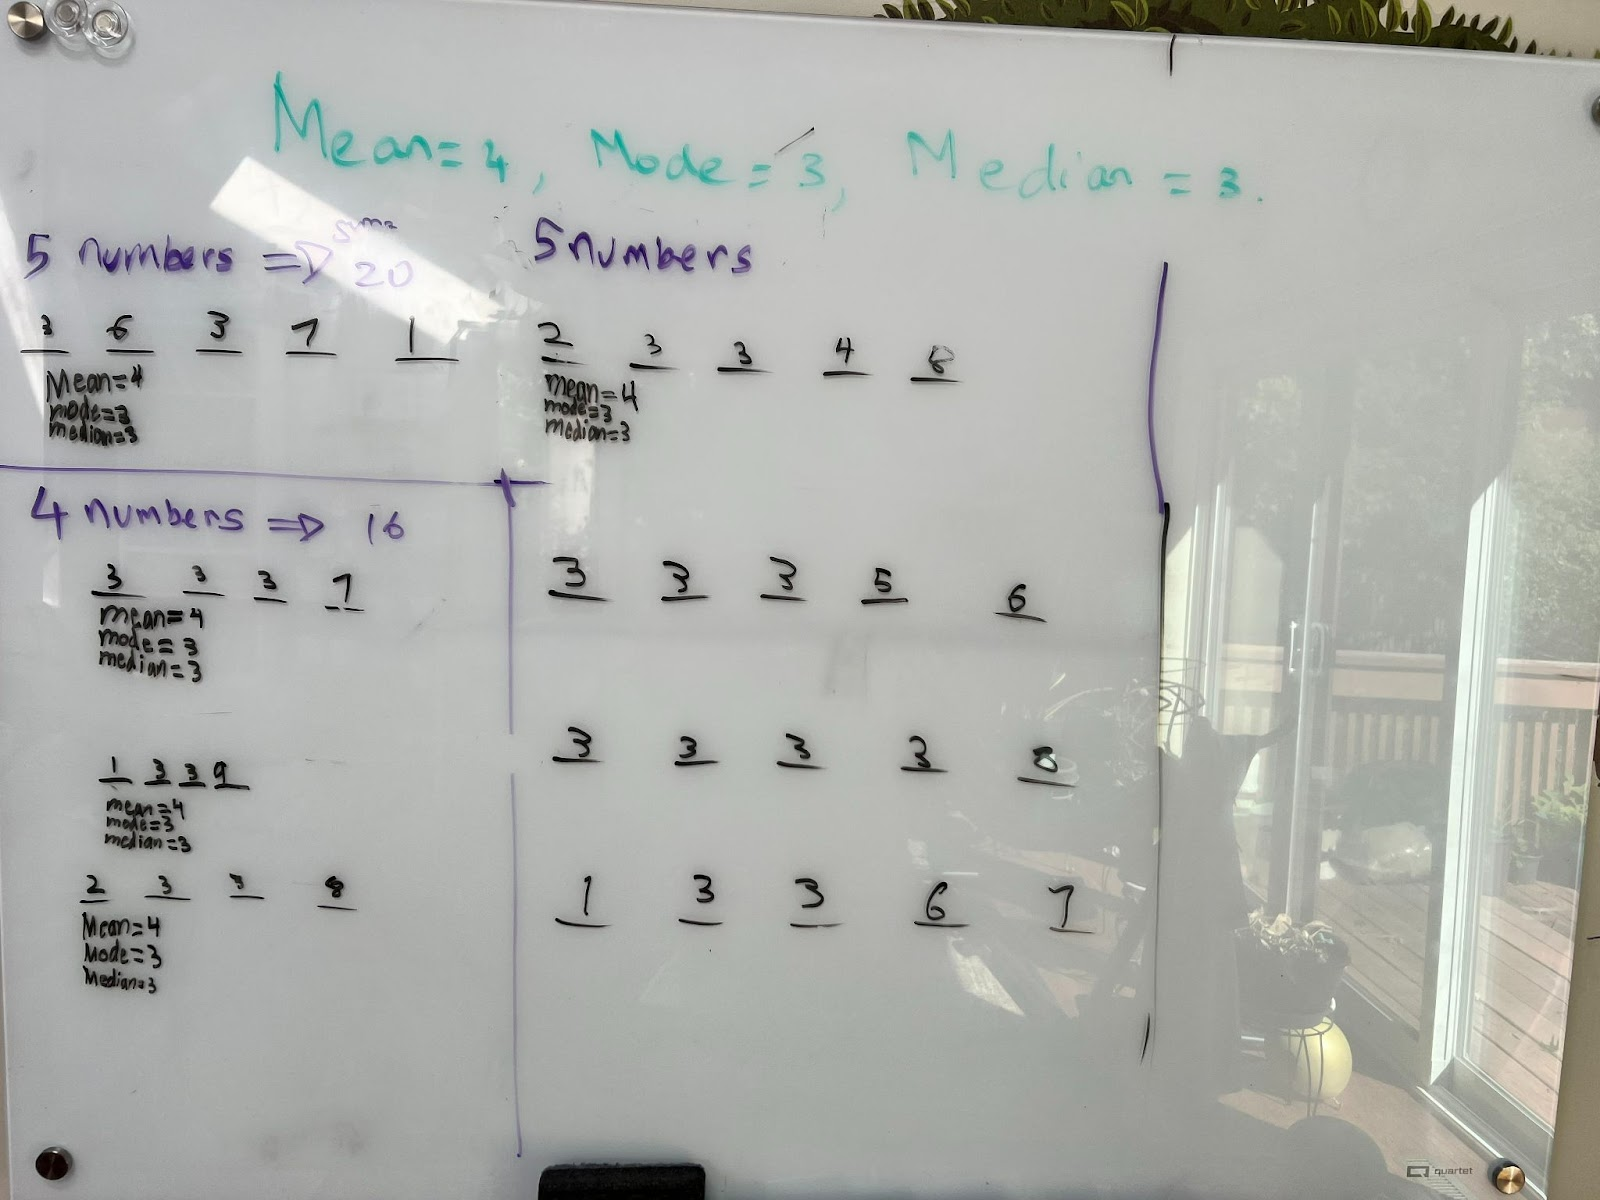 Mean = 4, Mode = 3, Median = 3.
5 numbers => sum= 20
3 6 3 7 1
Mean=4
mode=3
median=3
5 numbers
2 3 3 4 8
mean=4
mode=3
median=3
4 numbers => 16
3 3 3 7
mean=4
mode=3
median=3
1 3 3 9
mean=4
mode=3
median=3
2 3 3 8
Mean=4
Mode=3
Median=3
3 3 3 5 6
3 3 3 3 8
1 3 3 6 7
quartet